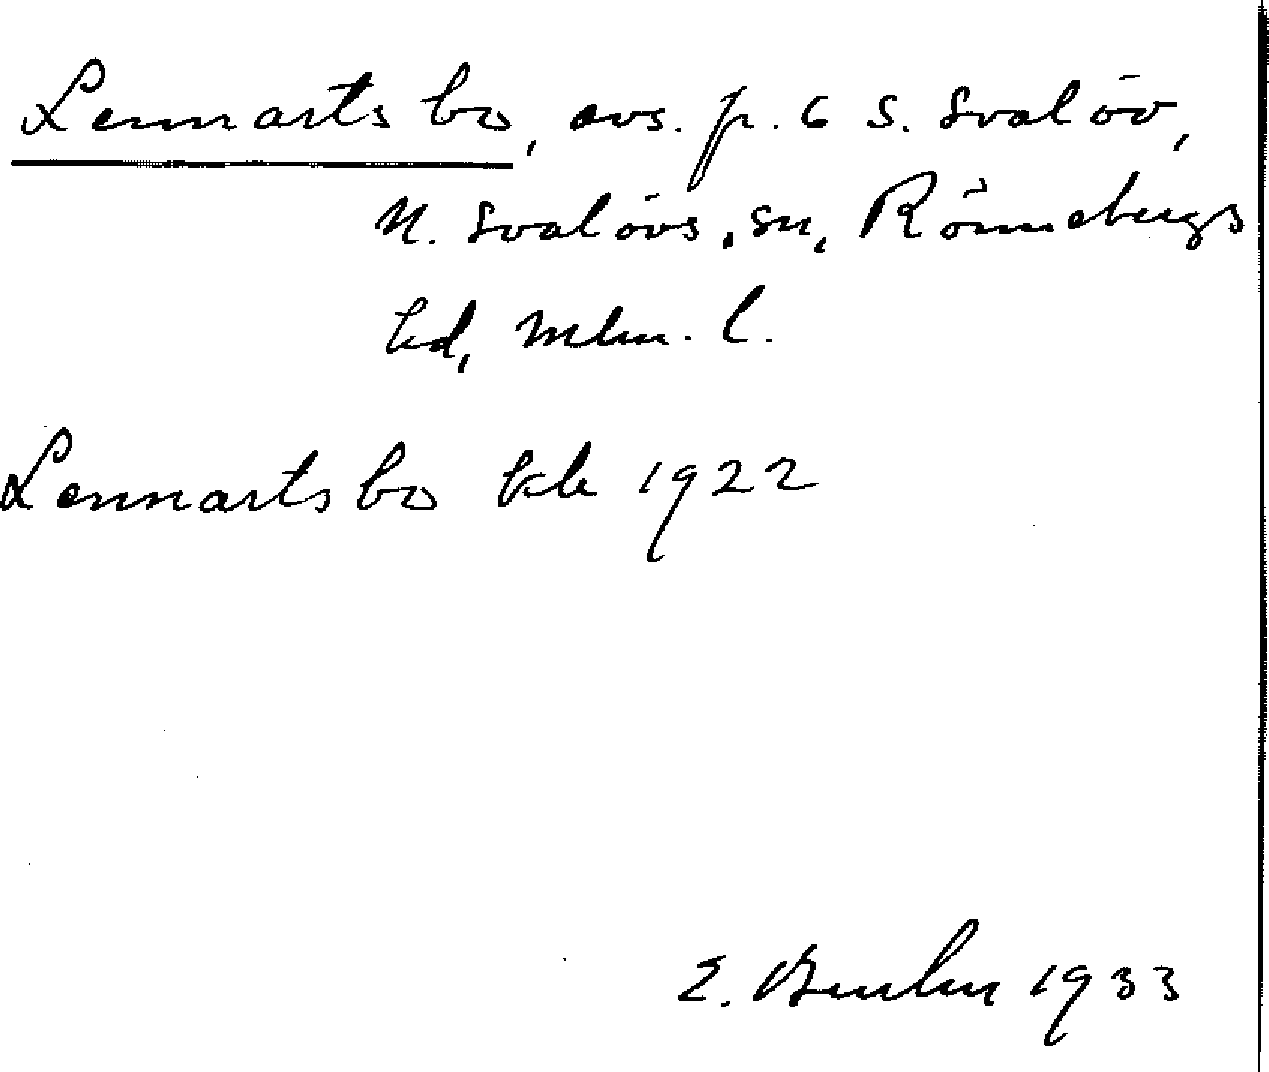 Lennartsbo, avs. fr. 6 S. Svalöv,
N. Svalövs, sn, Rönnebergs
hd, Mlm. l.
Lennartsbo 1922
E. 1933